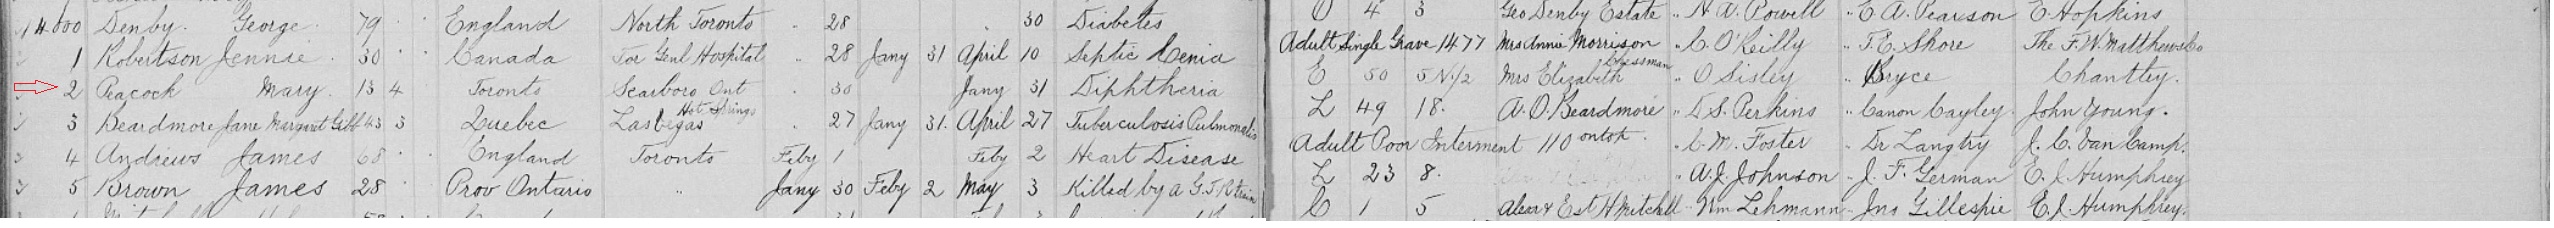 14000 Denby. George. 79 " " England North Toronto " 28 " 30 Diabetes O 4 3 Geo Denby Estate " N. A. Powell " E. A. Pearson E. Hopkins
1 Robertson Jennie. 30 " " Canada Tor Genl Hospital " 28 Jany 31 April 10 Septic Adult Single Grave 1477 Mrs Annie Morrison " C. O'Reilly " T. E. Shore The F. W. Matthews Co
2 Peacock Mary. 13 4 Toronto Scarboro Ont " 30 Jany 31 Diphtheria E 50 5 N 1/2 Mrs Elizabeth " O Sisley " Bryce Chantley.
3 Beardmore Jane Margaret Gibb 43 3 Quebec Las Vegas Hot Springs " 27 Jany 31. April 27 Tuberculosis Pulmonalis L 49 18. A. O. Beardmore " D. S. Perkins " Canon Cayley John Young.
4 Andrews James 68 " England Toronto Feby 1 Feby 2 Heart Disease Adult Poor Interment 110 on top. " C. M. Foster " Dr Langtry J. C. Van Camp.
5 Brown James 28 " Prov Ontario " Jany 30 Feby 2 May 3 Killed by a G. T. R train L 23 8. " A. J. Johnson " J. F. German E. J. Humphrey
C 1 5 Alexr & Est H Mitchell " Wm Lehmann " Jno Gillespie E. J. Humphrey.